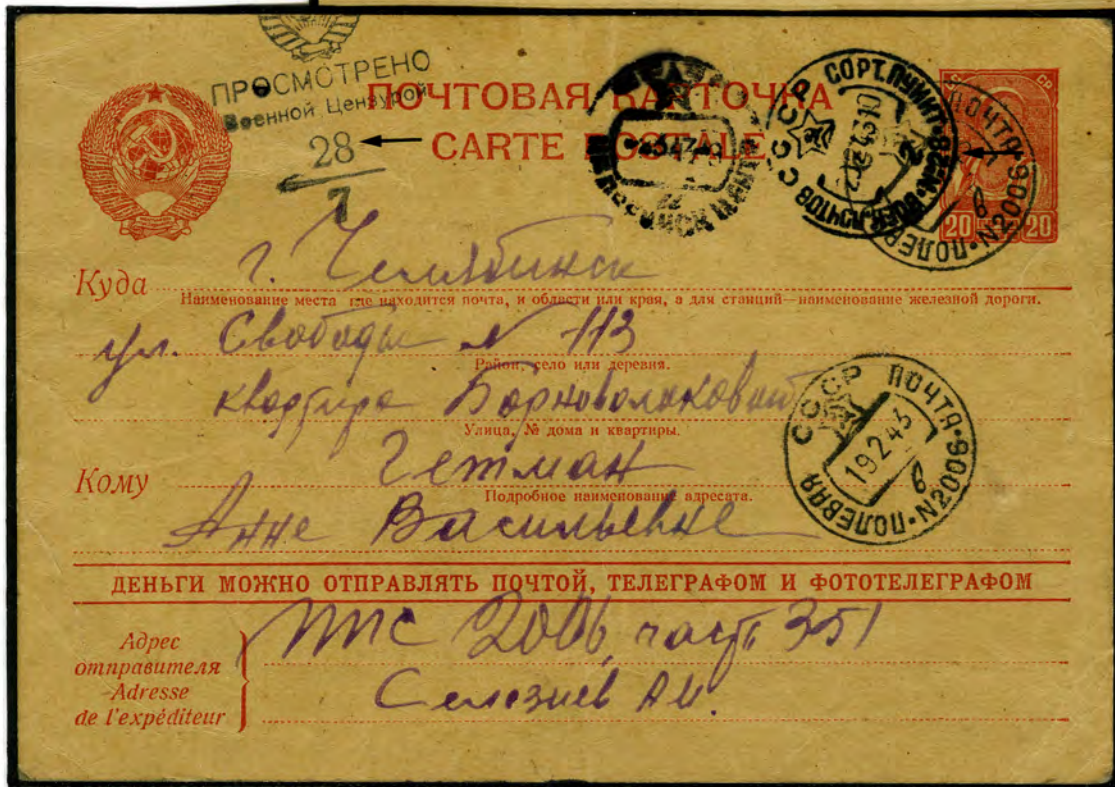 ПРОСМОТРЕНО
Военной Цензурой
28
7
ПОЧТОВАЯ КАРТОЧКА
CARTE POSTALE
СССР СОРТ.ПУНКТ N28
ПОЛЕВАЯ ПОЧТА N2006
20 20
Куда г. Челябинск
Наименование места где находится почта, и области или края, а для станций—наименование железной дороги.
ул. Свободы N 113
Район, село или деревня.
квартира
Улица, № дома и квартиры.
Кому Гетман
Подробное наименование адресата.
Анне Васильевне
СССР ПОЛЕВАЯ ПОЧТА N2006
19 2 43
в
ДЕНЬГИ МОЖНО ОТПРАВЛЯТЬ ПОЧТОЙ, ТЕЛЕГРАФОМ И ФОТОТЕЛЕГРАФОМ
Адрес отправителя
Adresse de l'expéditeur
ППС 2006, часть 351
Селезнев А.И.